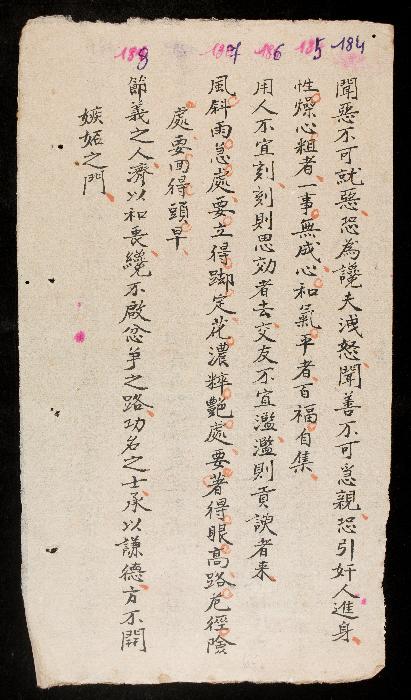 184
聞惡不可就惡恐為讒夫洩怒聞善不可急親恐引奸人進身
185
性燥心粗者一事無成心和氣平者百福自集
186
用人不宜刻刻則思効者去交友不宜濫濫則貢諛者來
187
風斜雨急處要立得脚定花濃粹艷處要著得眼高路危徑險
處要回得頭早
188
節義之人濟以和衷纔不啟忿爭之路功名之士承以謙德方不開
嫉妬之門